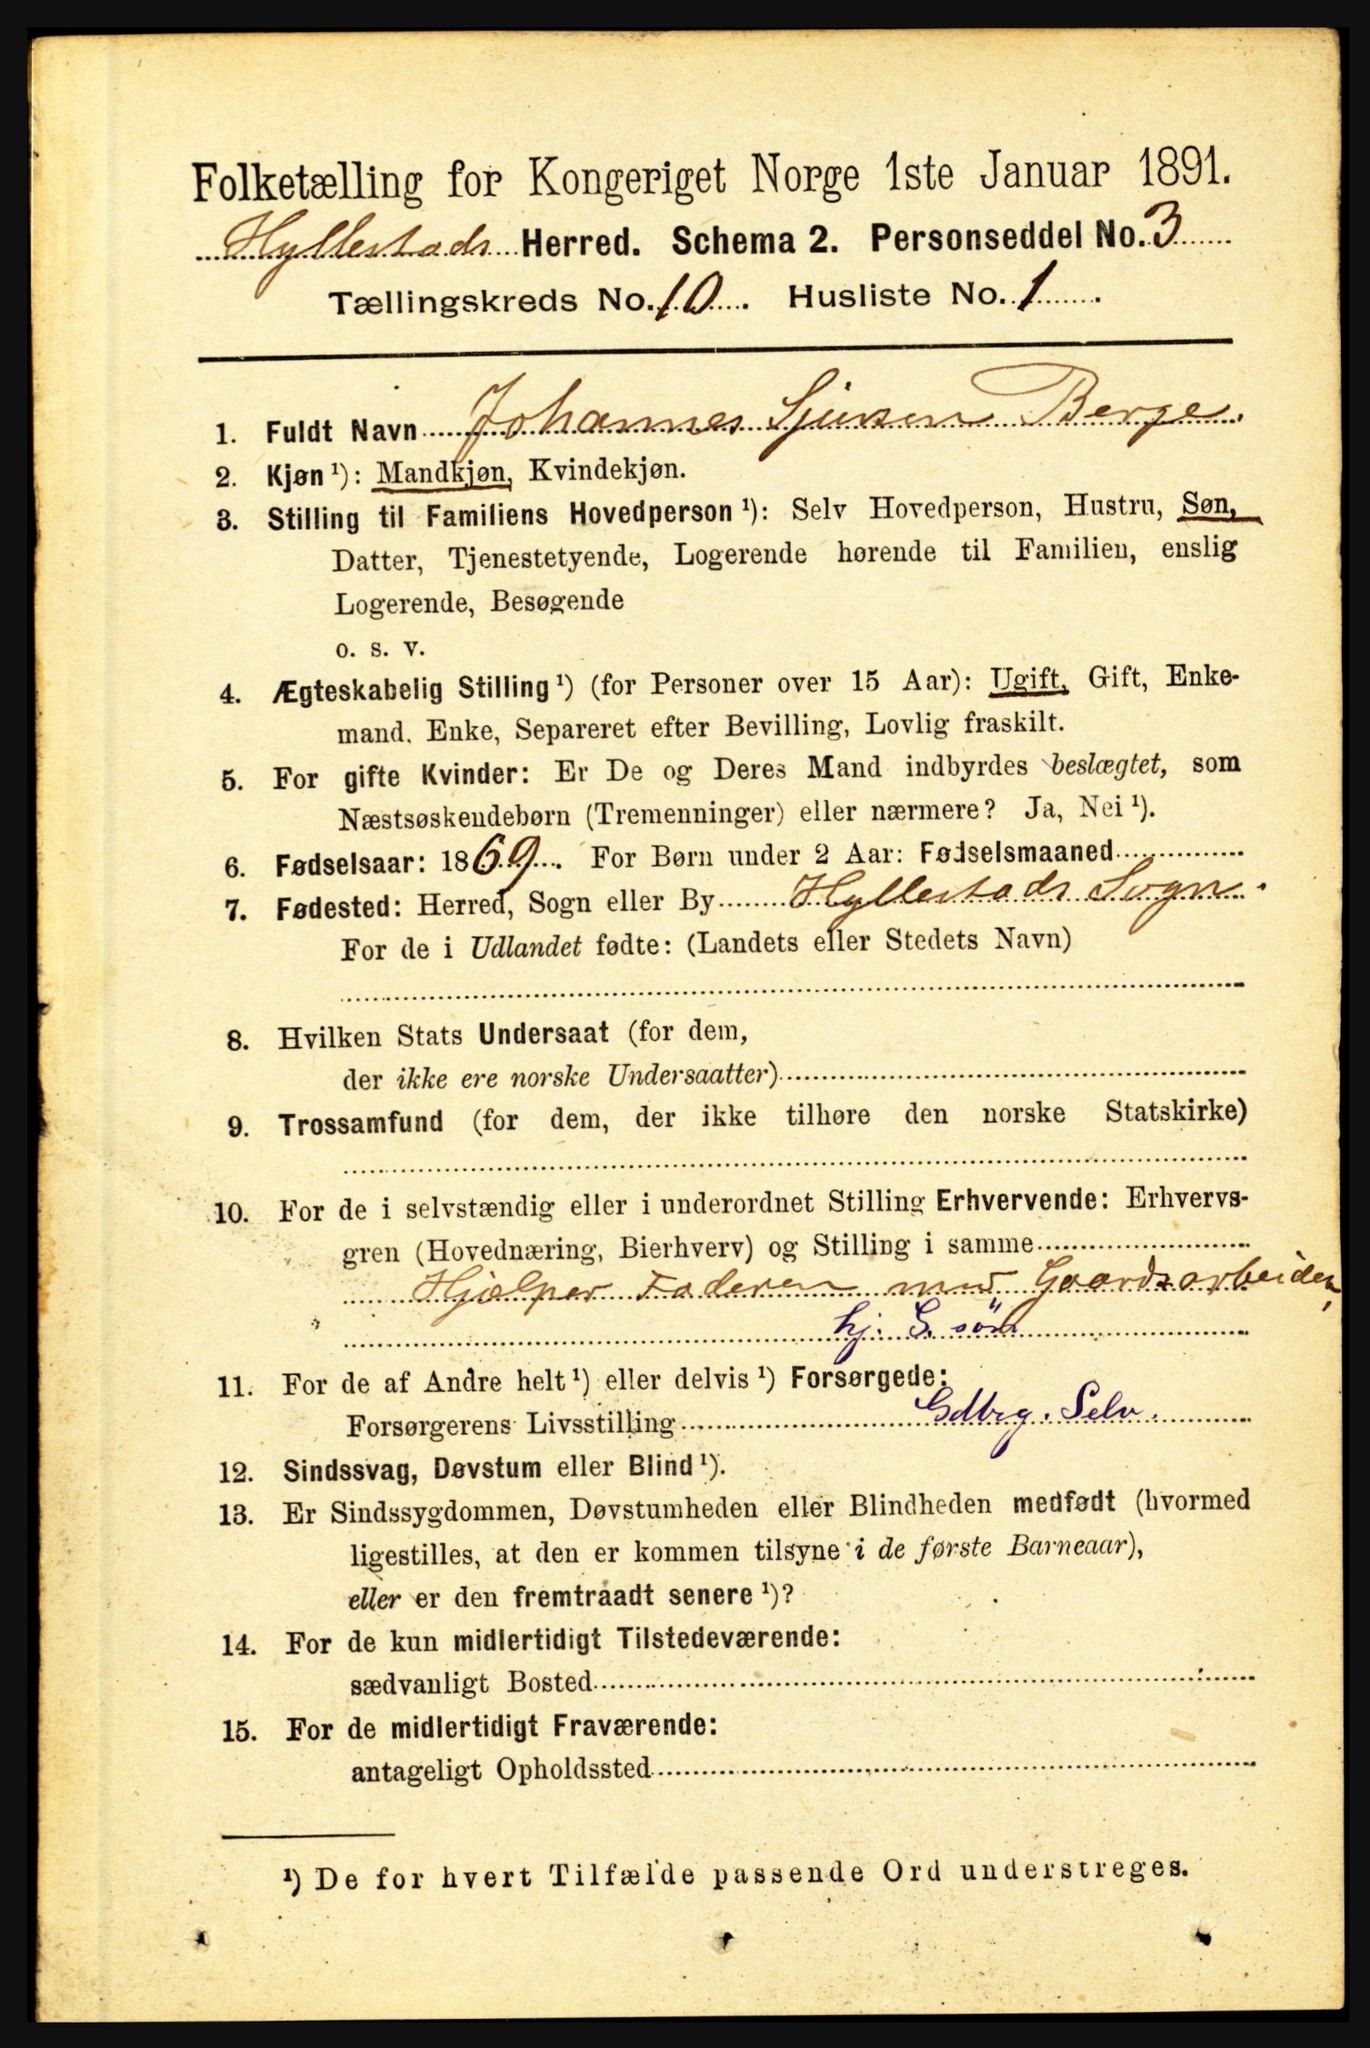 Folketælling for Kongeriget Norge 1ste Januar 1891.
Hyllestads Herred. Schema 2. Personseddel No. 3
Tællingskreds No. 10. Husliste No. 1.
1. Fuldt Navn Johannes Sjursen Berge.
2. Kjøn ¹): Mandkjøn, Kvindekjøn.
3. Stilling til Familiens Hovedperson ¹): Selv Hovedperson, Hustru, Søn,
Datter, Tjenestetyende, Logerende hørende til Familien, enslig
Logerende, Besøgende
o. s. v.
4. Ægteskabelig Stilling ¹) (for Personer over 15 Aar): Ugift, Gift, Enke-
mand, Enke, Separeret efter Bevilling, Lovlig fraskilt.
5. For gifte Kvinder: Er De og Deres Mand indbyrdes beslægtet, som
Næstsøskendebørn (Tremenninger) eller nærmere? Ja, Nei ¹).
6. Fødselsaar: 1869. For Børn under 2 Aar: Fødselsmaaned
7. Fødested: Herred, Sogn eller By Hyllestads Sogn.
For de i Udlandet fødte: (Landets eller Stedets Navn)
8. Hvilken Stats Undersaat (for dem,
der ikke ere norske Undersaatter)
9. Trossamfund (for dem, der ikke tilhøre den norske Statskirke)
10. For de i selvstændig eller i underordnet Stilling Erhvervende: Erhvervs-
gren (Hovednæring, Bierhverv) og Stilling i samme
Hjælper Faderen med Gaardsarbeiden,
hj. G. søn
11. For de af Andre helt ¹) eller delvis ¹) Forsørgede:
Forsørgerens Livsstilling Gdbrg. Selv.
12. Sindssvag, Døvstum eller Blind ¹).
13. Er Sindssygdommen, Døvstumheden eller Blindheden medfødt (hvormed
ligestilles, at den er kommen tilsyne i de første Barneaar),
eller er den fremtraadt senere ¹)?
14. For de kun midlertidigt Tilstedeværende:
sædvanligt Bosted
15. For de midlertidigt Fraværende:
antageligt Opholdssted
¹) De for hvert Tilfælde passende Ord understreges.